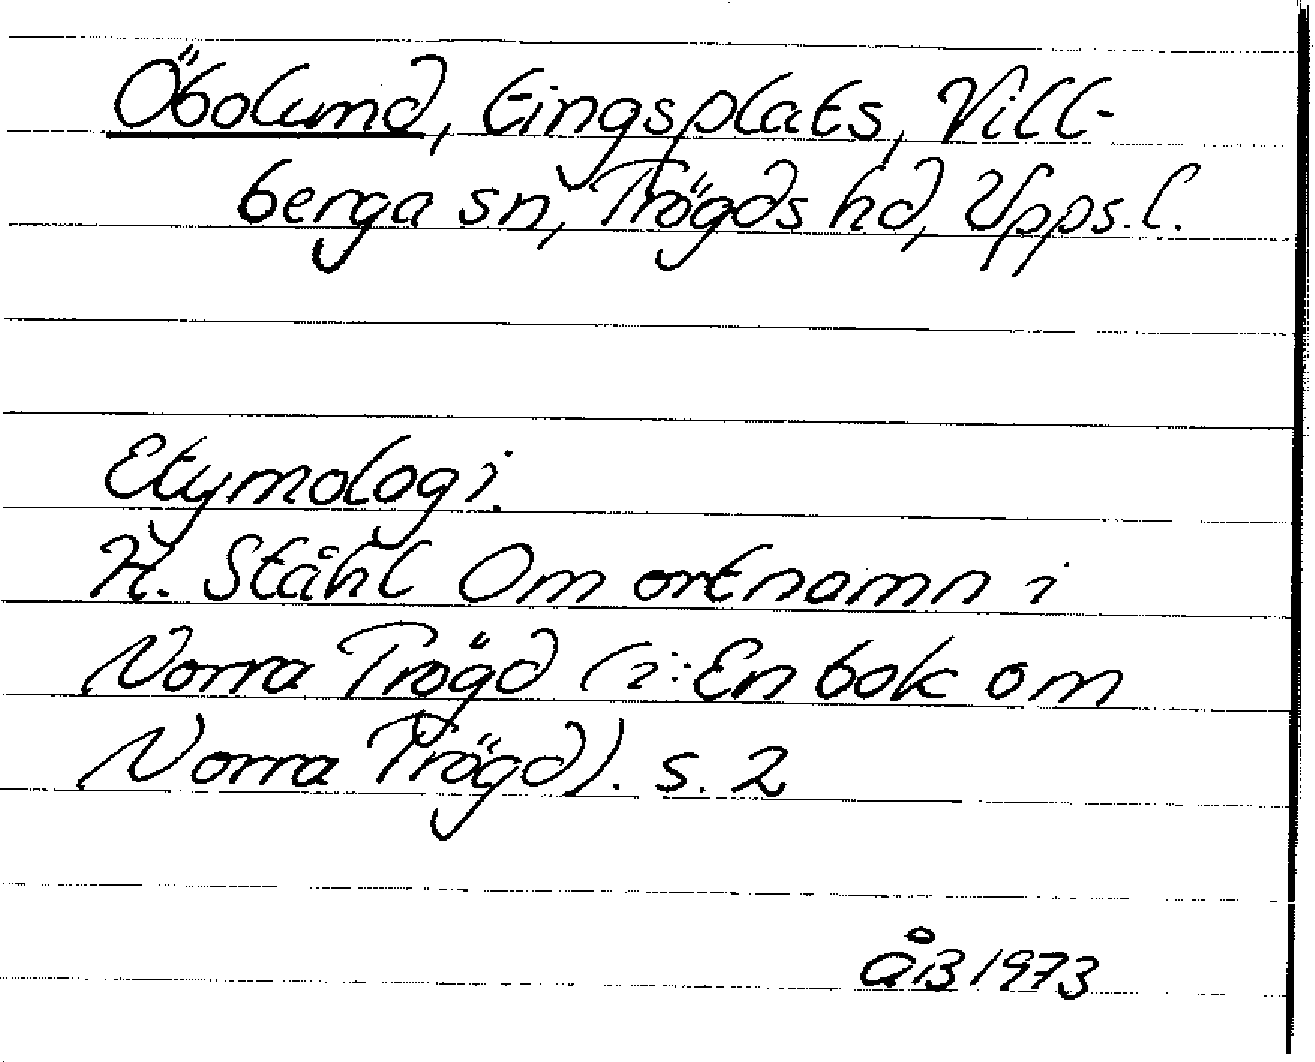 Öbolund, tingsplats, Vill-
berga sn, Trögds hd, Upps.l.
Etymologi.
H. Ståhl Om ortnamn i
Norra Trögd (i: En bok om
Norra Trögd). s. 2
ÅB 1973